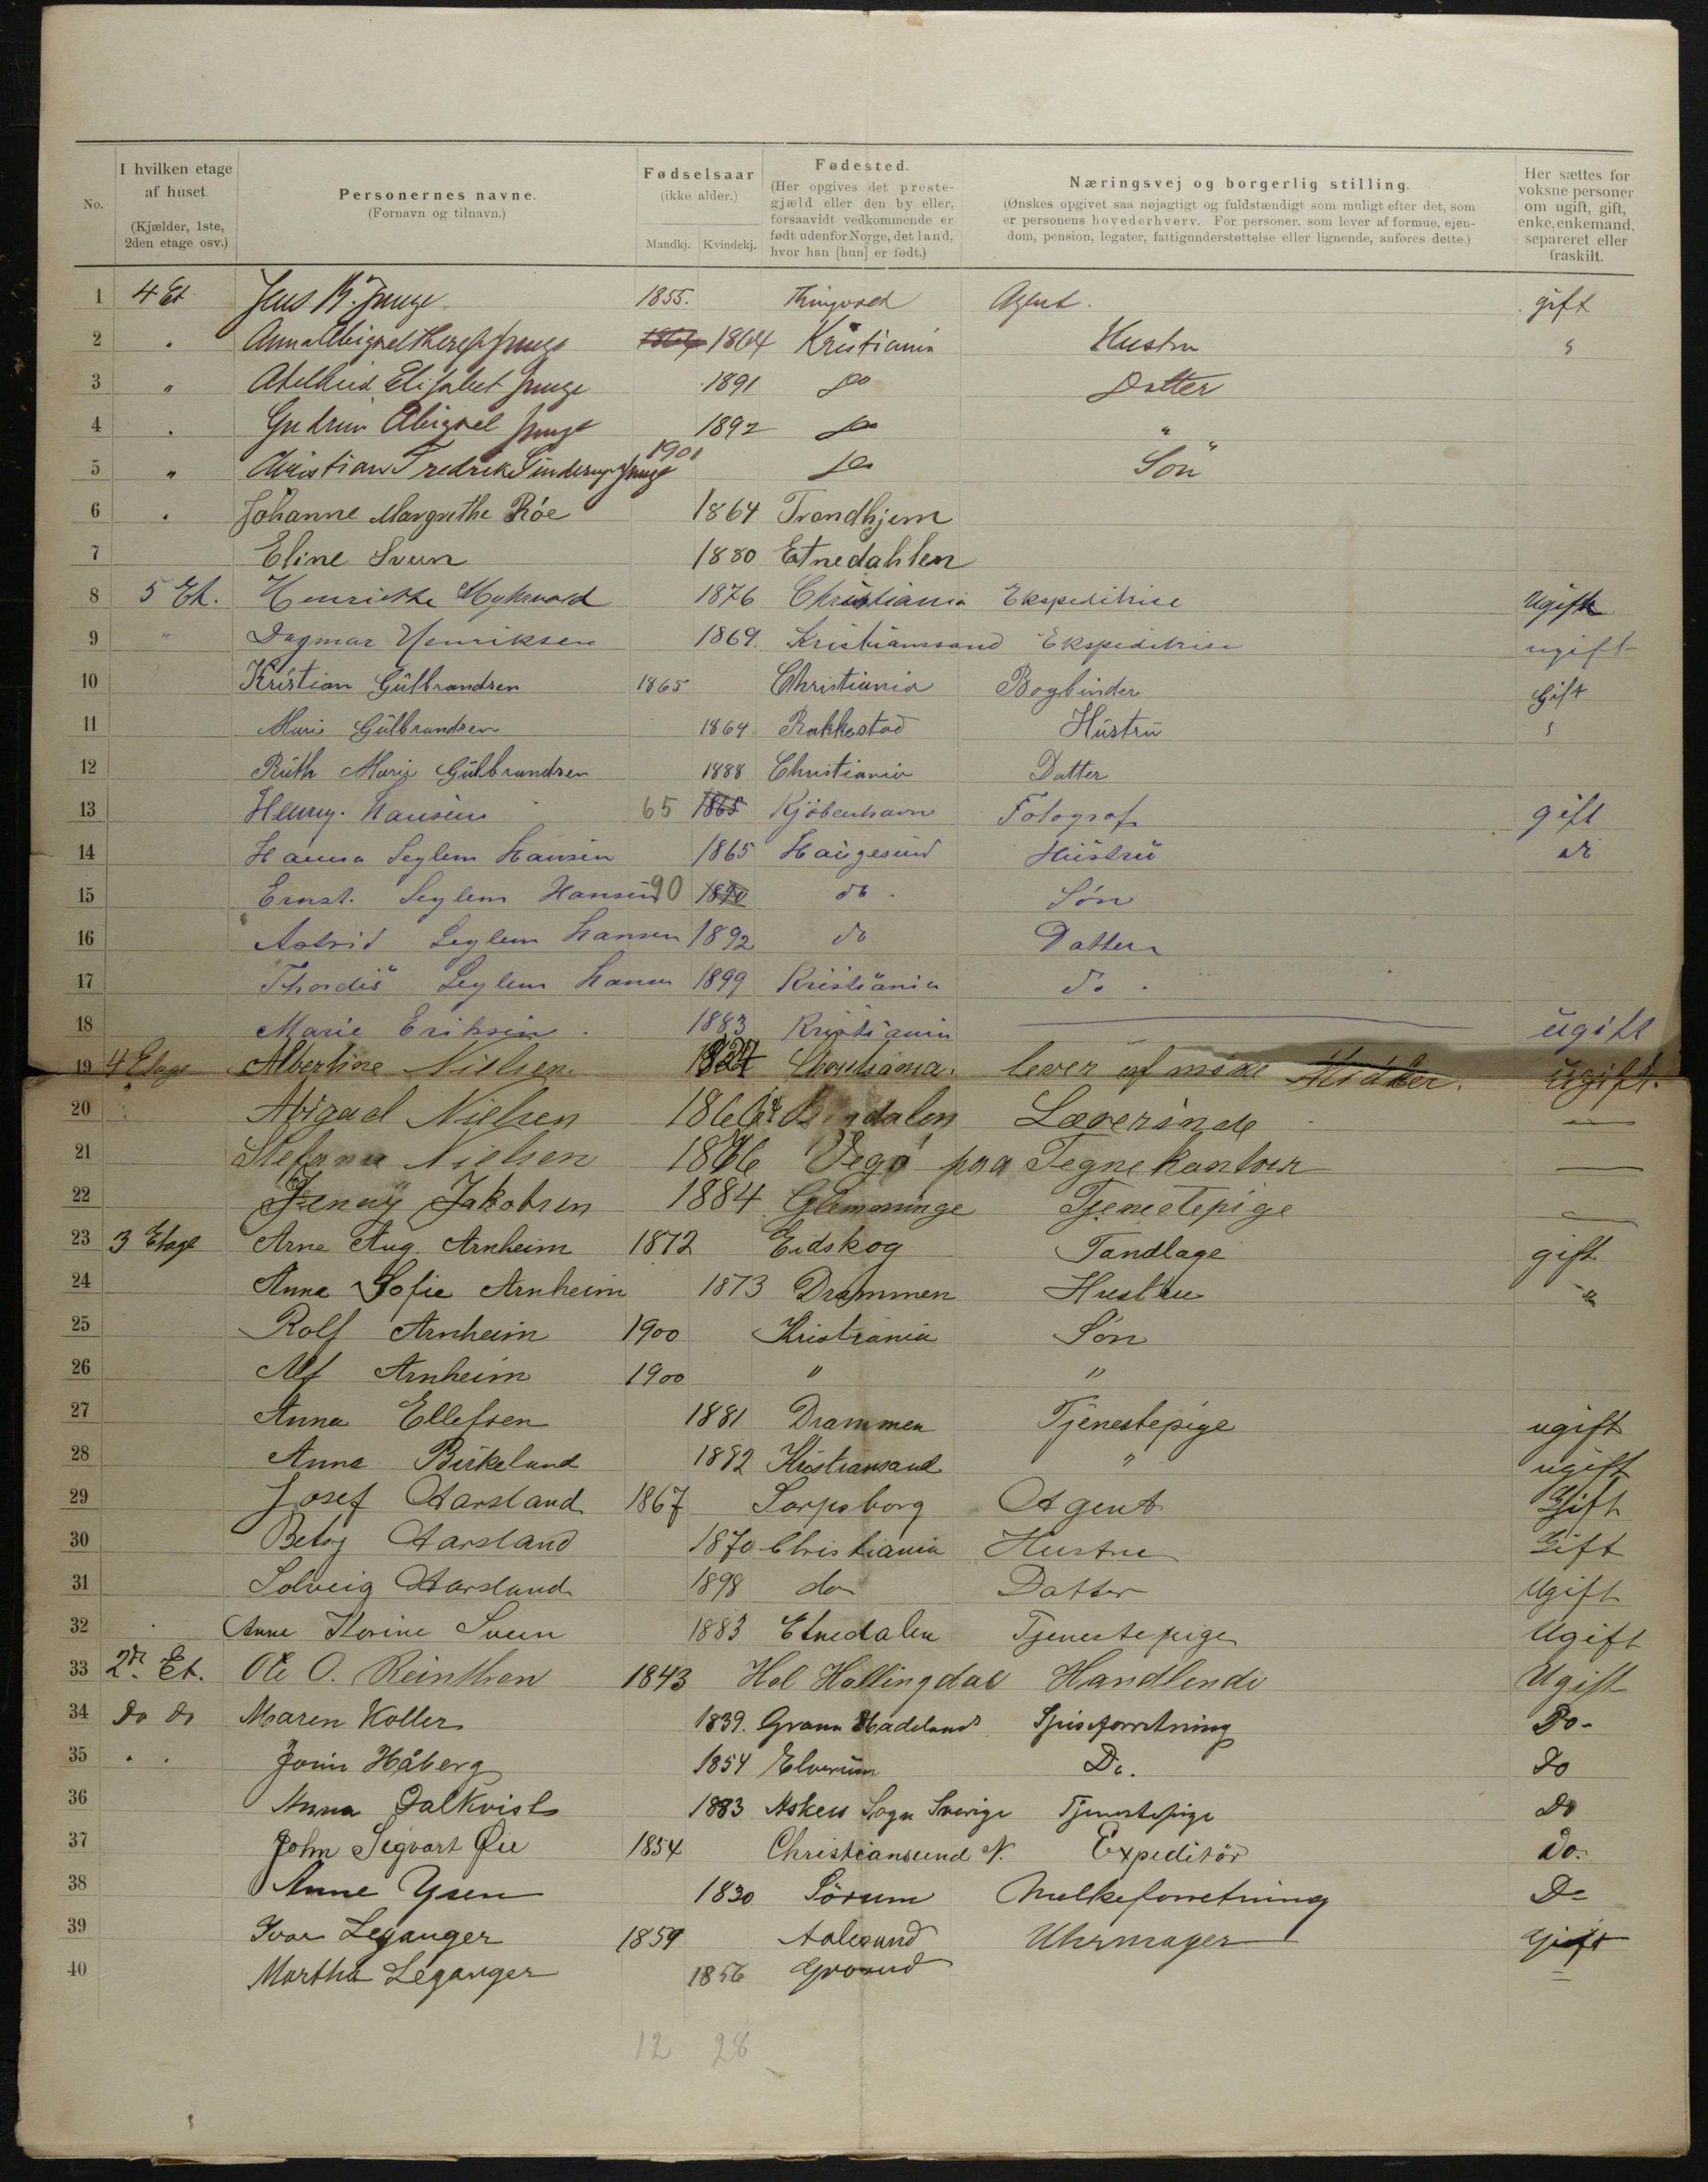 No.
I hvilken etage
af huset.
(Kjælder, 1ste,
2den etage osv.)
Personernes navne.
(Fornavn og tilnavn.)
Fødselsaar
(ikke alder.)
Mandkj. Kvindekj.
Fødested.
(Her opgives det preste-
gjæld eller den by eller,
forsaavidt vedkommende er
født udenfor Norge, det land,
hvor han [hun] er født.)
Næringsvej og borgerlig stilling.
(Ønskes opgivet saa nøjagtigt og fuldstændigt som muligt efter det, som
er personens hovederhverv. For personer, som lever af formue, ejen-
dom, pension, legater, fattigunderstøttelse eller lignende, anføres dette.)
Her sættes for
voksne personer
om ugift, gift,
enke, enkemand,
separeret eller
fraskilt.
1 4 Et. Jens 1855. Thingvold Agent. gift
2 " 1864 1864 Kristiania Hustru "
3 " Adelheid Elisabet 1891 do Datter
4 " Gudrun Abigael 1892 do "
5 " Christian Fredrik 1901 do Søn
6 " Johanne Margrethe Röe 1864 Trondhjem
7 Eline Sveen 1880 Etnedahlen
8 5 Et. Henriette Myhrvold 1876 Christiania Ekspeditrice Ugift
9 " Dagmar Henriksen 1869. Kristianssand Ekspeditrise ugift
10 Kristian Gülbrandsen 1865 Christiania Bogbinder Gift
11 Marie Gülbrandsen 1864. Rakkestad Hüstrü "
12 Rüth Marie Gülbrandsen 1888 Christiania Datter
13 Henry. Hansen 65 1865 Kjöbenhavn Fotograf gift
14 Hanna Seglem Hansen 1865 Haügesünd Hüstrü do
15 Ernst. Seglem Hansen 90 1890 do. Søn
16 Astrid Seglem Hansen 1892 do Datter
17 Thordis Seglem Hansen 1899 Kristiania do.
18 Marie Eriksen. 1883 Kristiania ugift
19 4 Etage Albertine Nielsen Christiania. lever af mine Midler. ugift.
20 Abigael Nielsen Lærerinde —
21 Stefanie Nielsen 1876 Vegø paa Tegnekontoir —
22 Jenny Jakobsen 1884 Glemminge Tjenestepige —
23 3 Etage Arne Aug. Arnheim 1872 Eidskog Tandlage gift
24 Anna Sofie Arnheim 1873 Drammen Hustru "
25 Rolf Arnheim 1900 Kristiania Søn
26 Alf Arnheim 1900 " "
27 Anna Ellefsen 1881 Drammen Tjenestepige ugift
28 Anna Birkeland 1882 Kristiansand " ugift
29 Josef Aarsland 1867 Sarpsborg Agent Gift
30 Betsy Aarsland 1870 Christiania Hustru Gift
31 Solveig Aarsland 1898 do Datter Ugift
32 Anne Korine Sveen 1883 Etnedalen Tjenestepige Ugift
33 2n. Et. Ole O. Reinthon 1843 Hol Hallingdal Handlende Ugift
34 do do Maren Koller 1839. Grann Hadeland Spiseforretning Do.
35 " " Jonin Håberg 1854 Elverüm Do. do
36 Anna Dalkvist 1883 Askers Sogn Sverige Tjenestepige Do
37 John Sigvart Øie 1854 Christiansund N. Expeditör do.
38 Anne Ysen 1830 Sörum Melkeforretning Do
39 Ivar Leganger 1859 Aalesund Uhrmager Gift
40 Martha Leganger 1856 Grorud "
12 28